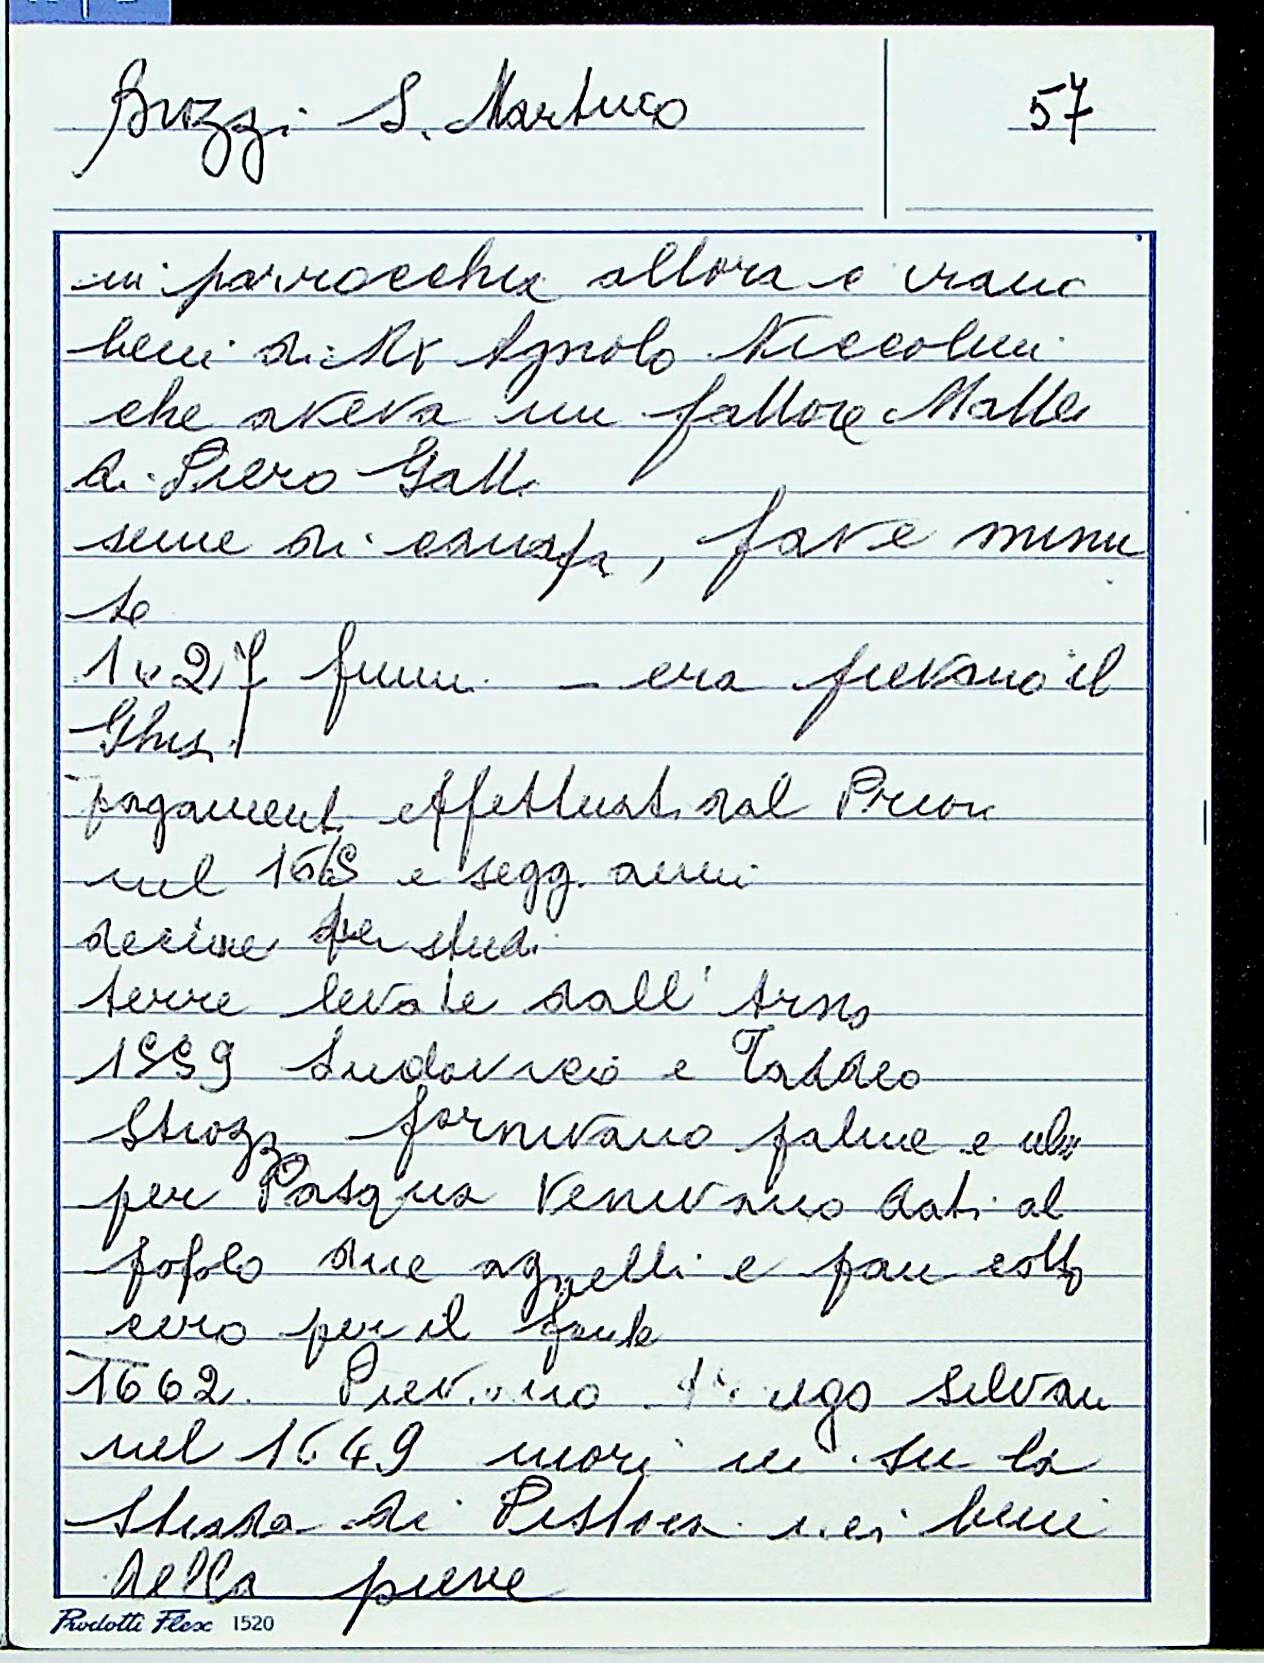 Brozzi S. Martino
57
in parrocchia allora c'erano
beni di Mr Agnolo Niccolini
che aveva un fattore Matteo
di Piero Galli
seme di canapa, fave minu
te
fiumi – era pievano il
Ghisi
pagamenti effettuati dal Priore
nel e segg. anni
decime per studi
terre levate dall'Arno
1559 Ludovico e Taddeo
Strozzi fornivano palme e ulivi
per Pasqua venivano dati al
popolo due agnelli e pan cotto
cero per il fonte
1662. Pievano Ugo Silvani
nel 1649 morì in su la
strada di Pistoia nei beni
della pieve
Prodotti Flex 1520